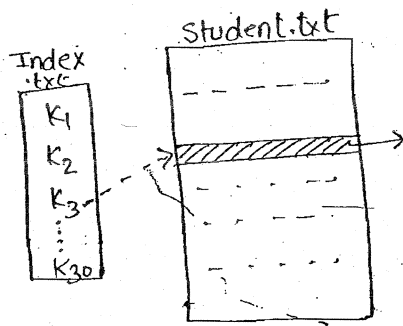 Student.txt
Index
.txt
K1
K2
K3
K30